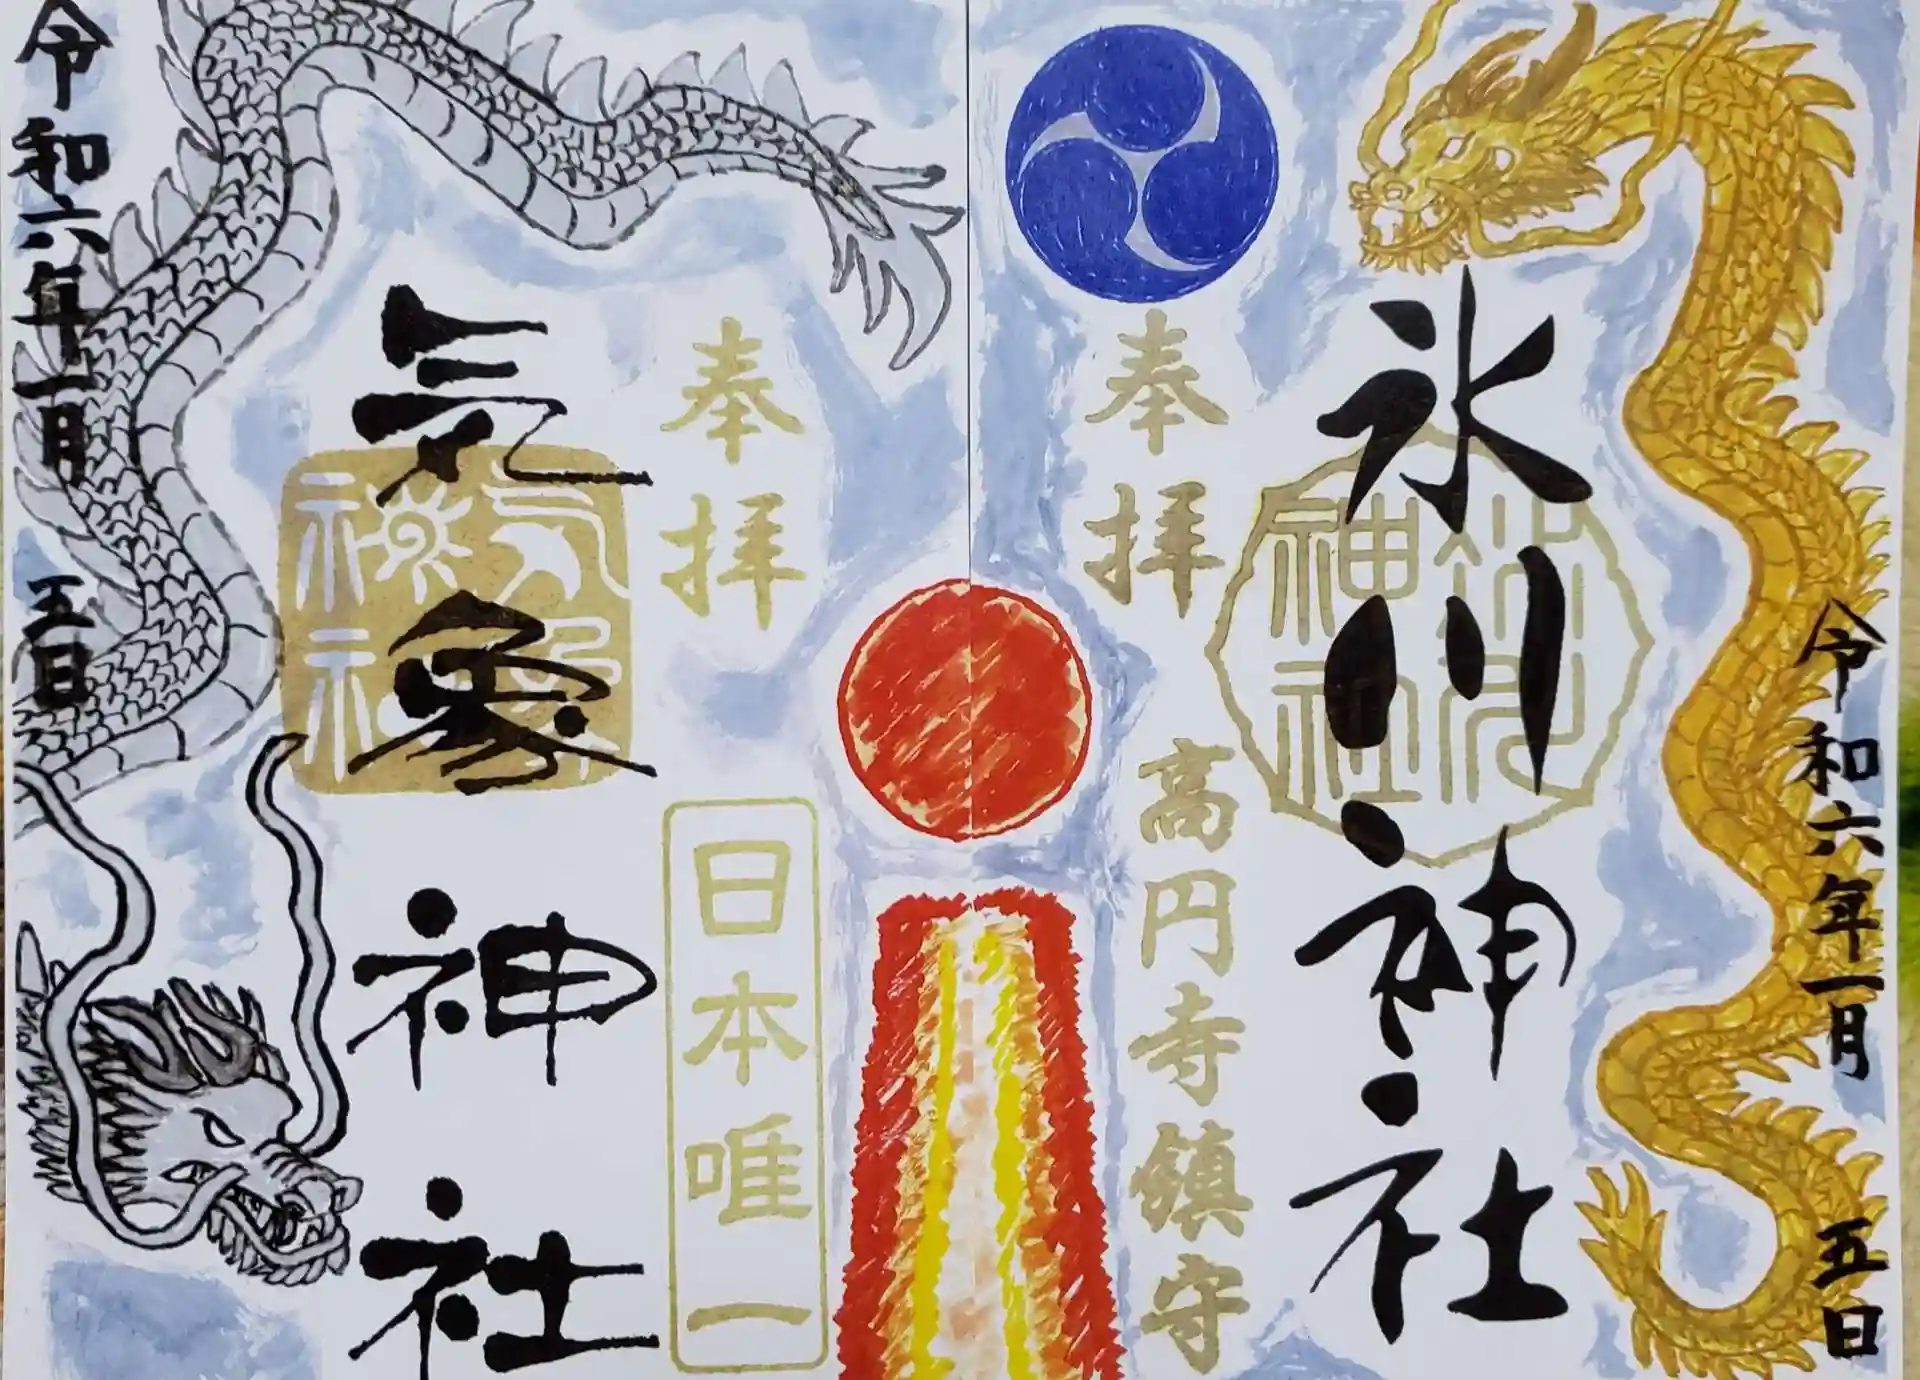 奉拝
氷川神社
高円寺鎮守
氷川神社
令和六年一月五日
奉拝
気象神社
日本唯一
令和六年一月五日